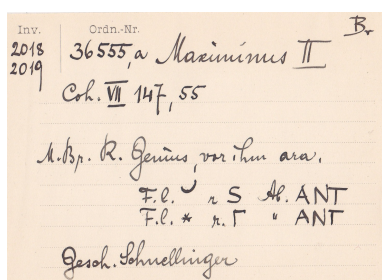 B.
Inv. Ordn.-Nr.
2018 36555,a Maximinus II
2019
Coh. VII 147, 55
M.Br. R. Genius, vor ihm ara.
F.l. ◡ r S Ab. ANT
F.l. * r. Γ " ANT
Gesch. Schnellinger